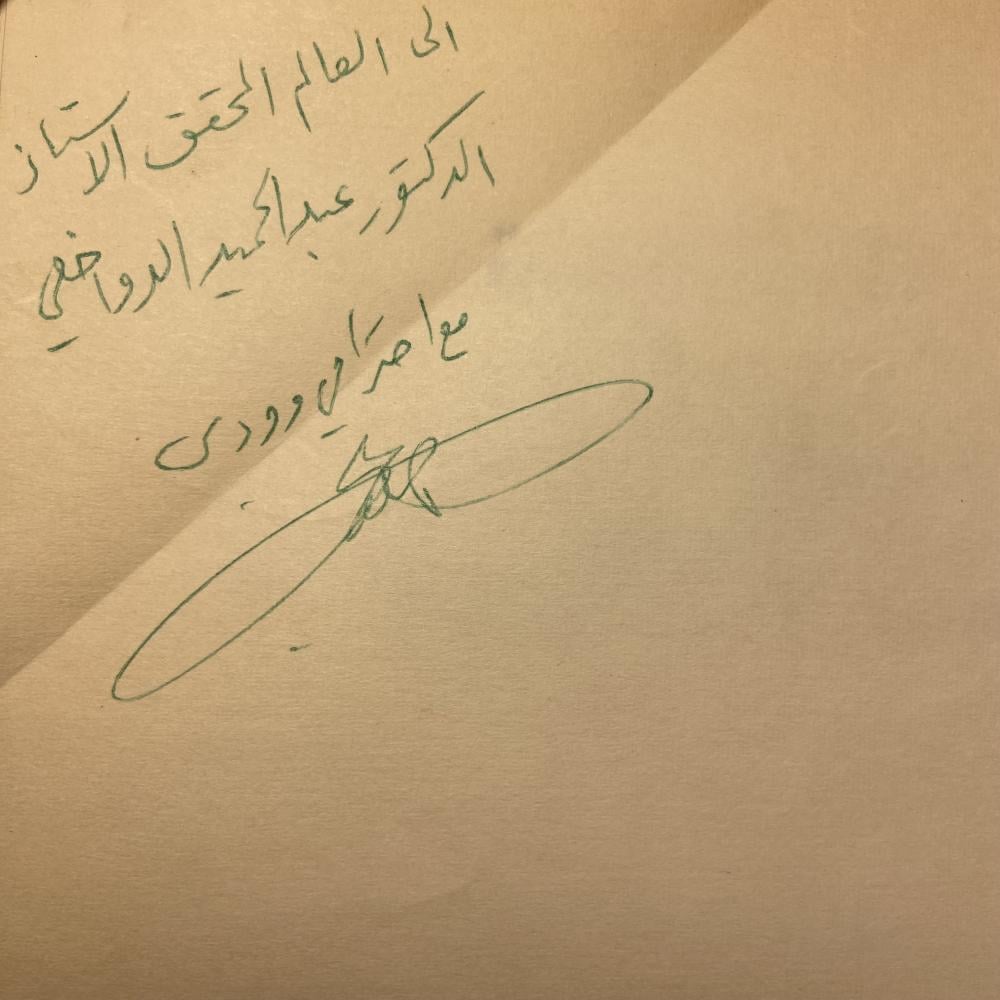 الى العالم المحقق الاستاذ
الدكتور عبد الحميد الدواخلي
مع احترامي وودى